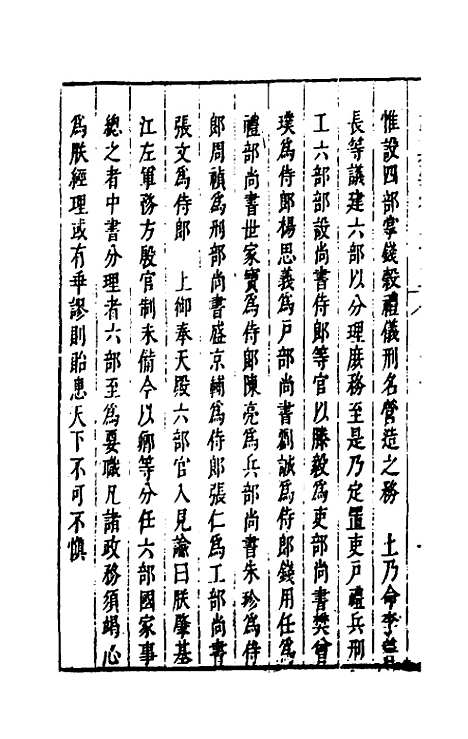 惟設四部掌錢穀禮儀刑名營造之務　上乃命李善
長等議建六部以分理庶務至是乃定置吏戶禮兵刑
工六部部設尚書侍郎等官以滕毅爲吏部尚書樊魯
璞爲侍郎楊思義爲戶部尚書劉誠爲侍郎錢用任爲
禮部尚書世家寶爲侍郎陳亮爲兵部尚書朱珍爲侍
郎周禎爲刑部尚書盛京輔爲侍郎張仁爲工部尚書
張文爲侍郎　上御奉天殿六部官入見諭曰朕肇基
江左軍務方殷官制未備今以卿等分任六部國家事
總之者中書分理者六部至爲要職凡諸政務須竭心
爲朕經理或有乖謬則貽患天下不可不慎